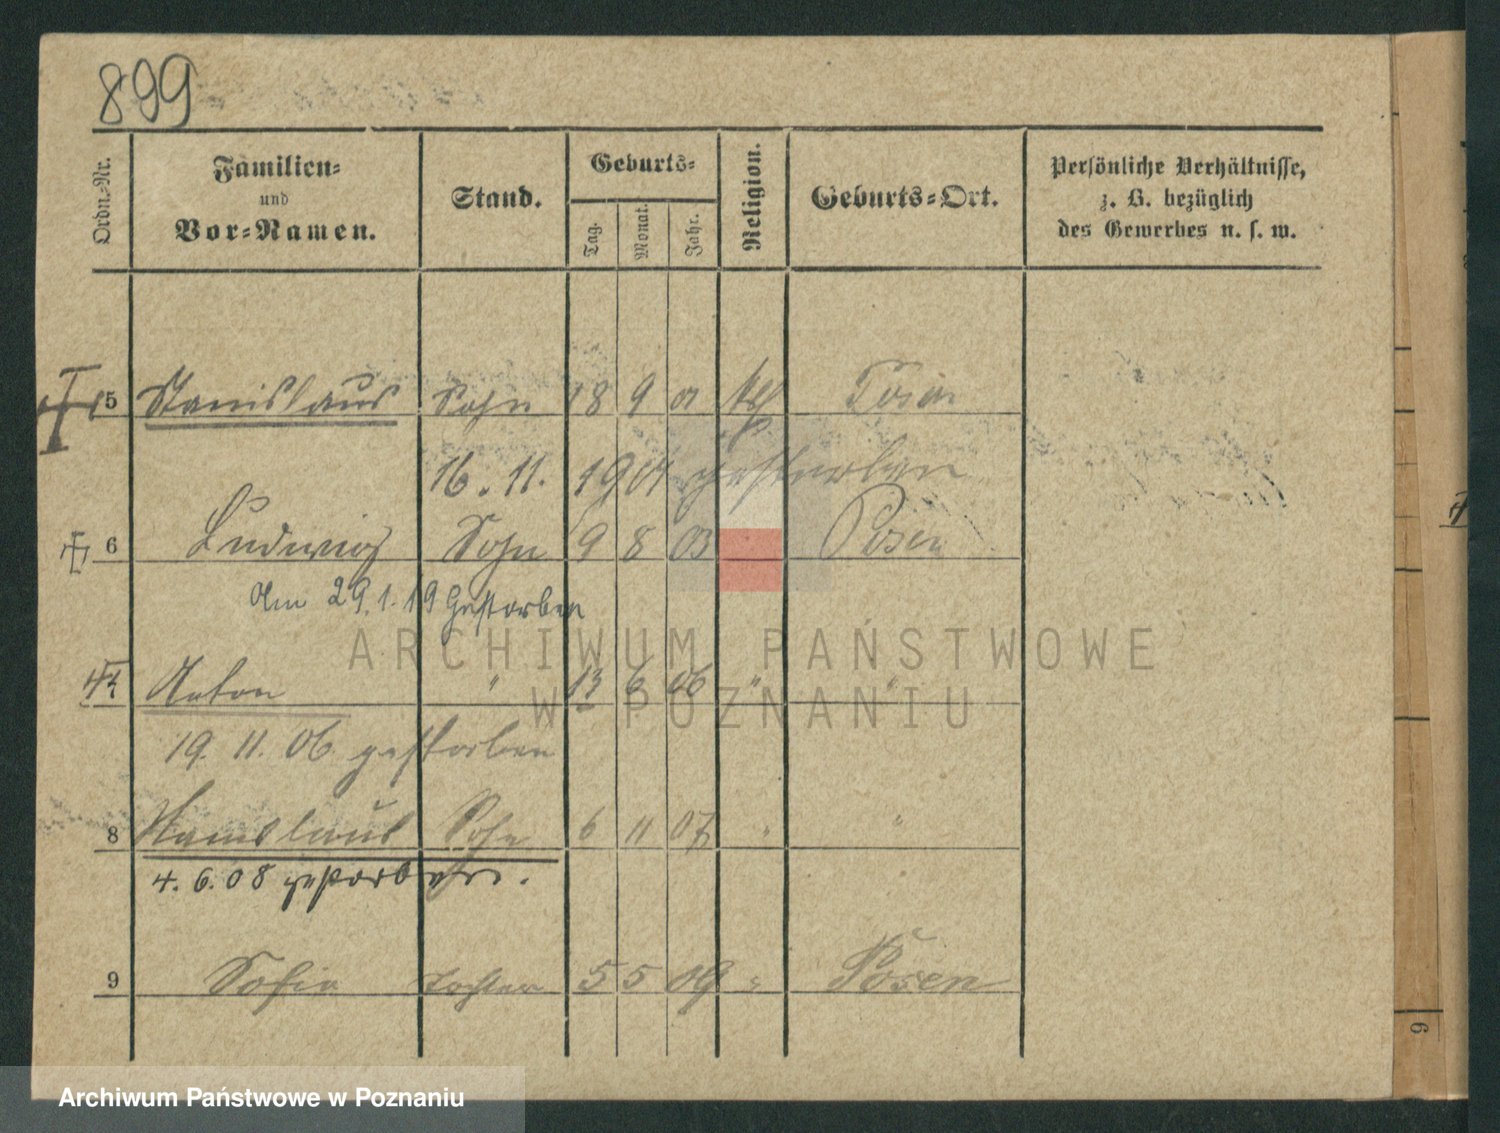 899
Ordn.-Nr.
Familien-
und
Vor-Namen.
Stand.
Geburts-
Tag.
Monat.
Jahr.
Religion.
Geburts-Ort.
Persönliche Verhältnisse,
z. B. bezüglich
des Gewerbes u. s. w.
5 Stanislaus Sohn 18 9 01 kth Posen
16. 11. 1901 gestorben
6 Ludwig Sohn 9 8 03 Posen
Am 29.1.19 Gestorben
Anton " 13 6 06 " "
19. 11. 06. gestorben
8 Stanislaus Sohn 6 11 07 " "
4. 6. 08 gestorben.
9 Sofia Tochter 5 5 09 " Posen
6
ARCHIWUM PAŃSTWOWE
W POZNANIU
Archiwum Państwowe w Poznaniu